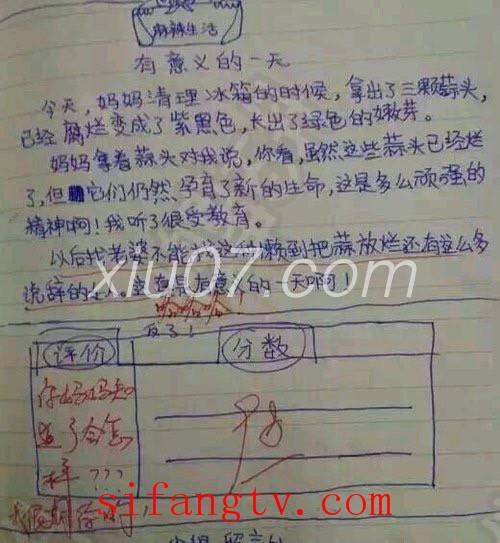 麻辣生活
有意义的一天
今天,妈妈清理冰箱的时候,拿出了三颗蒜头,
已经腐烂变成了紫黑色,长出了绿色的嫩芽。
妈妈拿着蒜头对我说,你看,虽然这些蒜头已经烂
了,但它们仍然孕育了新的生命,这是多么顽强的
精神啊!我听了很受教育。
以后找老婆不能找这种懒到把蒜放烂还有这么多
说辞的女人。这真是有意义的一天啊!
xiu07.com
哈哈哈
反了!
评价
分数
你妈妈知
道了会怎
样???
我很期待
sifangtv.com